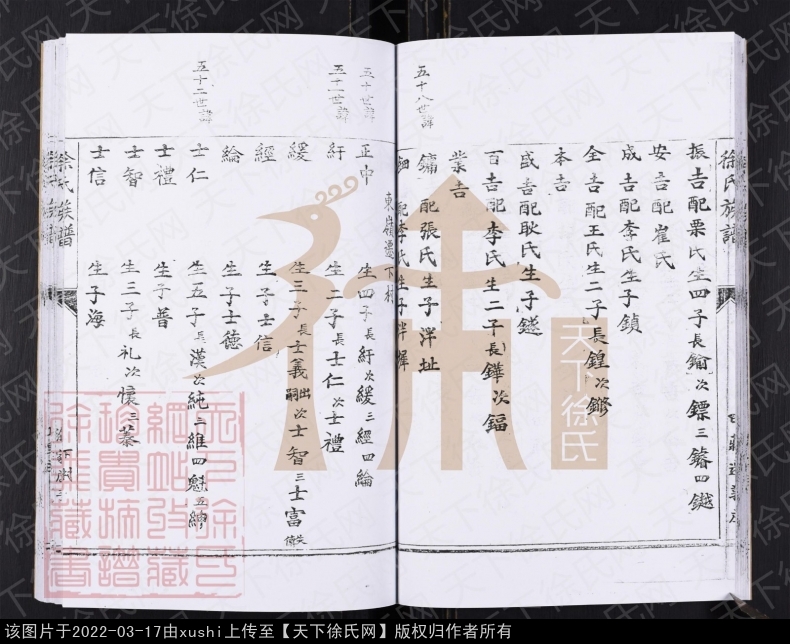 徐氏族譜
振吉配栗氏生四子長鍮次鏢三鏪四鉞
安吾配崔氏
成吉配李氏生子鎮
全吉配王氏生二子長鍠次鏘
本吉
盛吉配耿氏生子鐩
百吉配李氏生二子長鏵次鍢
業吉
五十八世諱
鏞配張氏生子泮址
鈿配李氏生子
東嶺遷下村
五十世諱
正中生四子長紆次緩三經四綸
五十一世諱
紆生二子長士仁次士禮
緩生三子長士義出嗣次士智三士富失傳
經生子士信
綸生子士德
五十二世諱
士仁生五子長漢次純三維四魁五紳
士禮生子普
士智生三子長礼次懷三慕
士信生子海
徐氏族譜
天下徐氏
天下徐氏网
该图片于2022-03-17由xushi上传至【天下徐氏网】版权归作者所有